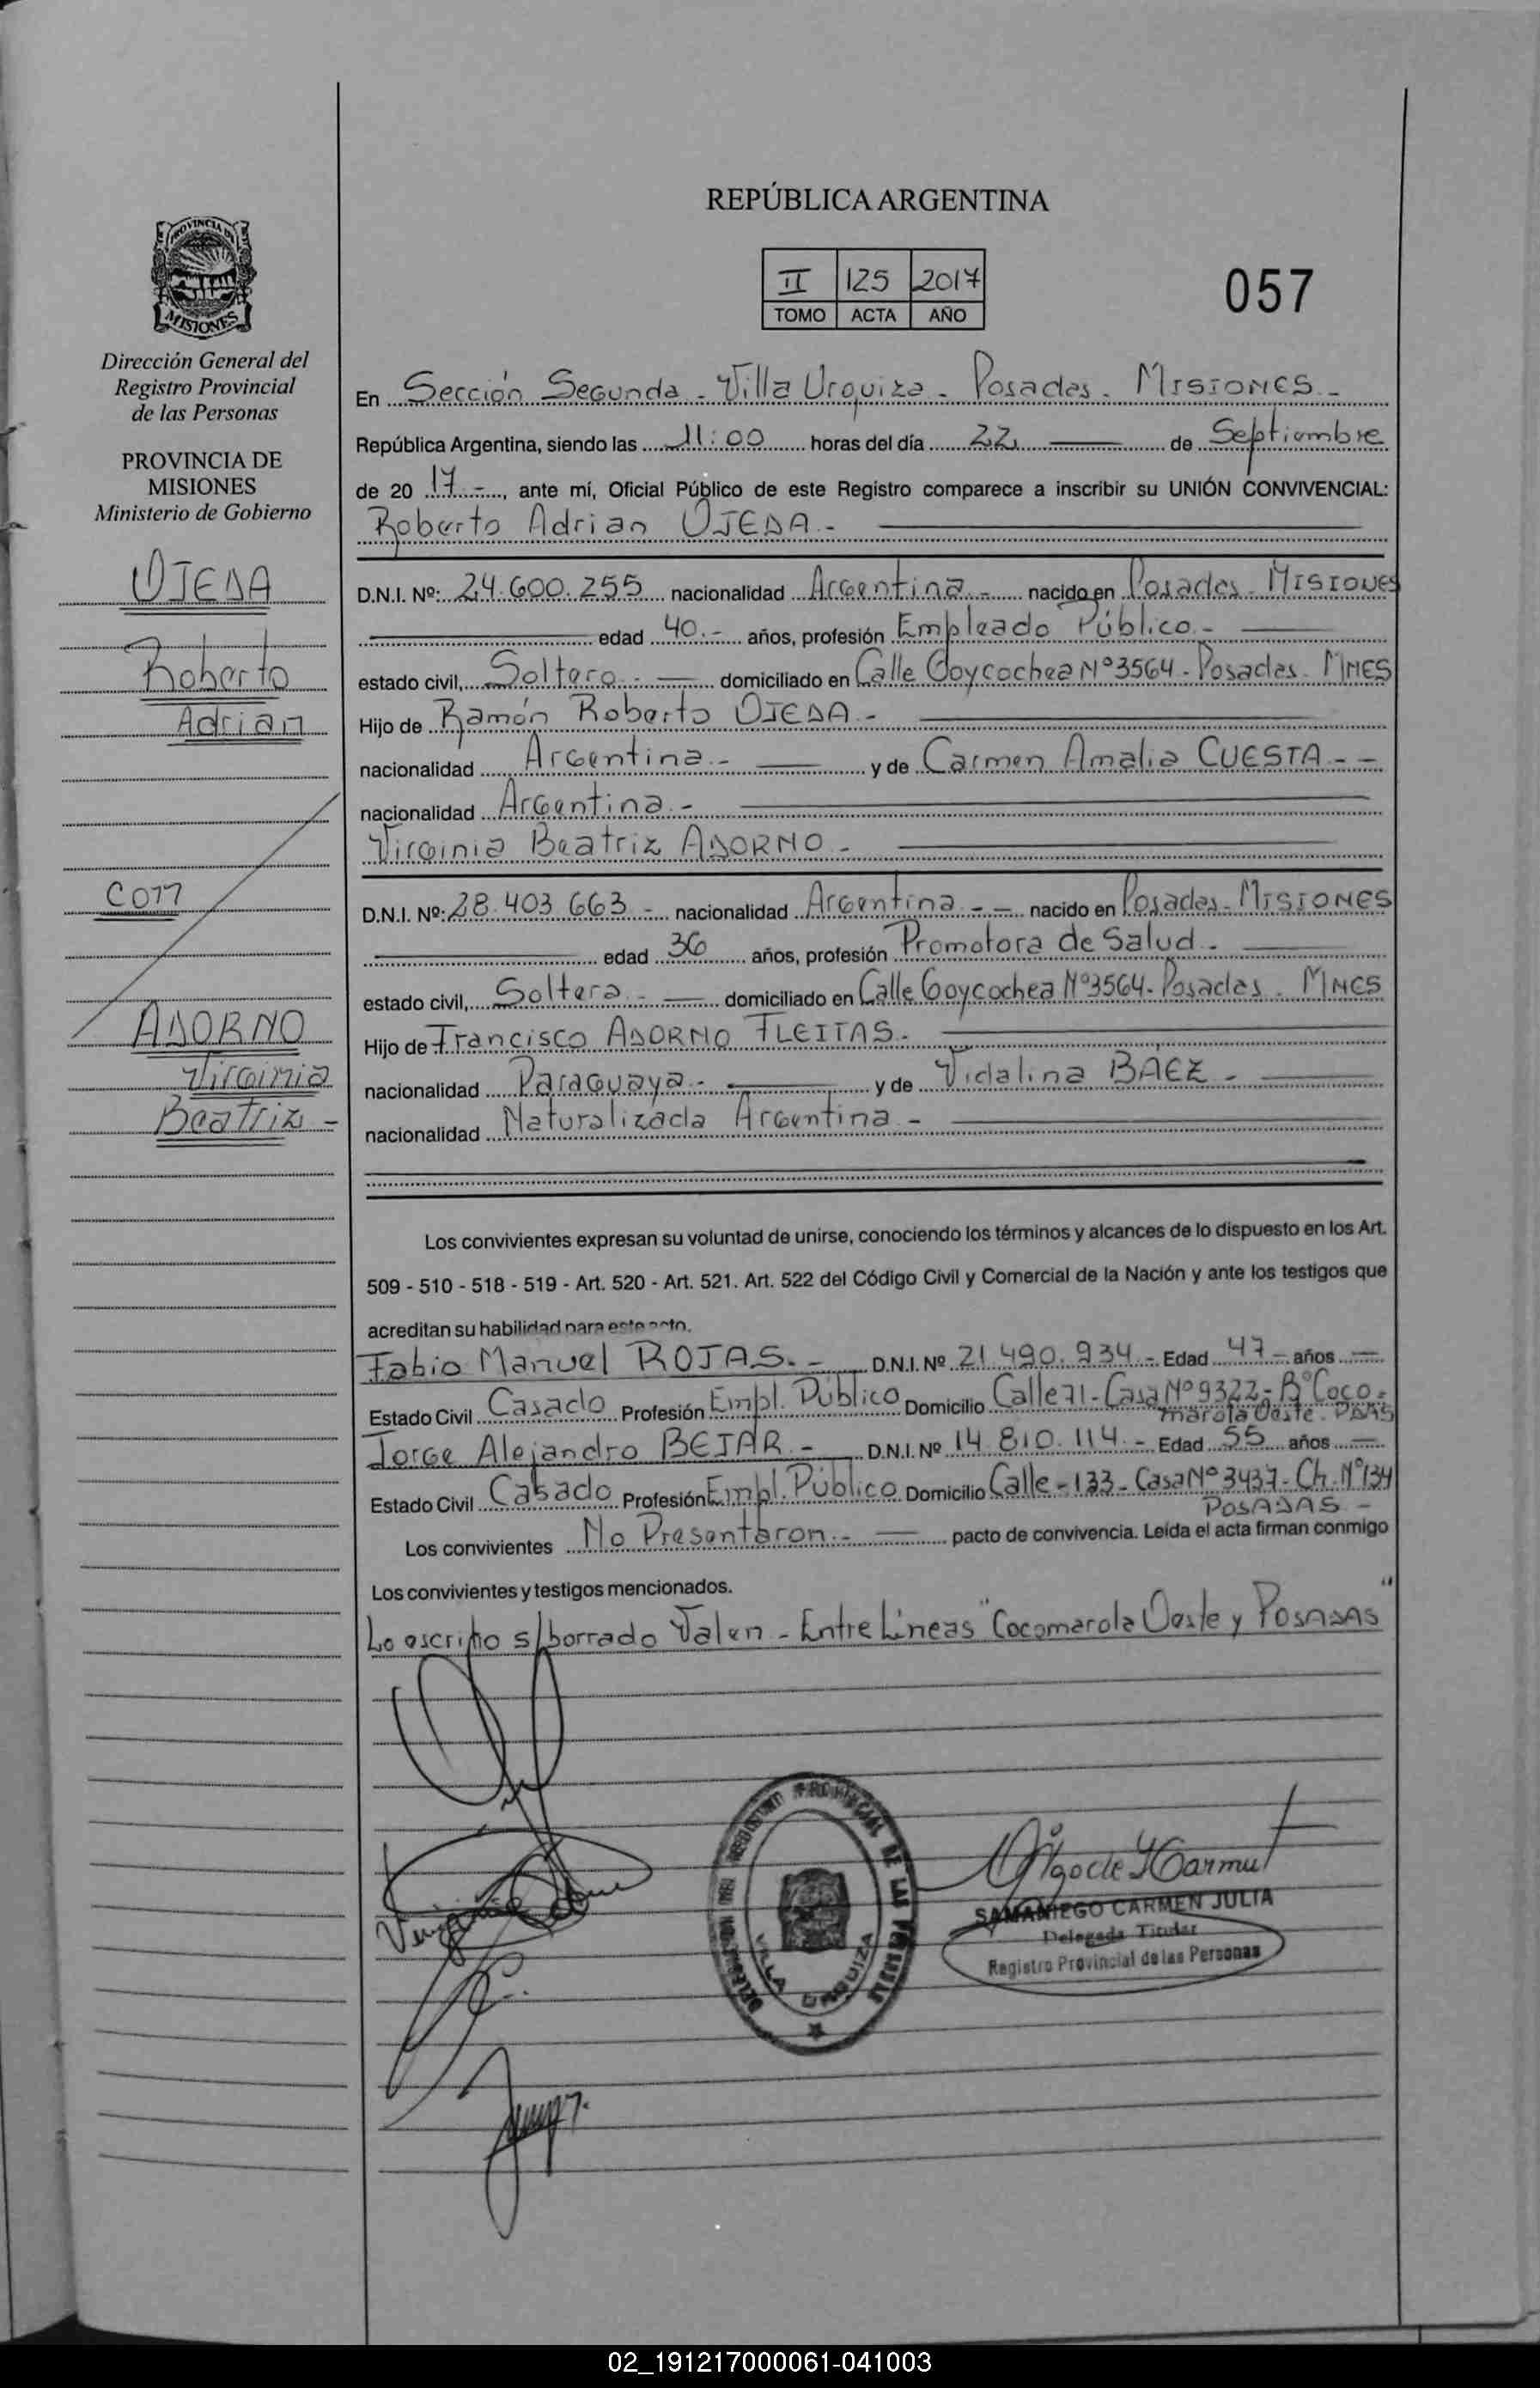 REPÚBLICA ARGENTINA
II 125 2017
TOMO ACTA AÑO
057
PROVINCIA DE
MISIONES
Dirección General del
Registro Provincial
de las Personas
PROVINCIA DE
MISIONES
Ministerio de Gobierno
OJEDA
Roberto
Adrian
CON
ADORNO
Virginia
Beatriz -
En Sección Segunda - Villa Urquiza - Posadas - MISIONES -
República Argentina, siendo las 11:00 horas del día 22 de Septiembre
de 20 17 -, ante mí, Oficial Público de este Registro comparece a inscribir su UNIÓN CONVIVENCIAL:
Roberto Adrian OJEDA -
D.N.I. Nº: 24.600.255 nacionalidad Argentina - nacido en Posadas - MISIONES
edad 40.- años, profesión Empleado Público -
estado civil, Soltero - domiciliado en Calle Goycochea Nº 3564 - Posadas - MNES
Hijo de Ramón Roberto OJEDA -
nacionalidad Argentina - y de Carmen Amalia CUESTA - -
nacionalidad Argentina -
Virginia Beatriz ADORNO -
D.N.I. Nº: 28.403.663 - nacionalidad Argentina - - nacido en Posadas - MISIONES
edad 36 años, profesión Promotora de Salud -
estado civil, Soltera - domiciliado en Calle Goycochea Nº 3564 - Posadas - MNES
Hijo de Francisco ADORNO FLEITAS.
nacionalidad Paraguaya - y de Vidalina BÁEZ -
nacionalidad Naturalizada Argentina -
Los convivientes expresan su voluntad de unirse, conociendo los términos y alcances de lo dispuesto en los Art.
509 - 510 - 518 - 519 - Art. 520 - Art. 521. Art. 522 del Código Civil y Comercial de la Nación y ante los testigos que
acreditan su habilidad para este acto.
Fabio Manuel ROJAS. - D.N.I. Nº 21.490.934 - Edad 47 - años
Estado Civil Casado Profesión Empl. Público Domicilio Calle 71 - Casa Nº 9322 - Bº Coco-
marola Oeste - PDAS
Jorge Alejandro BEJAR - D.N.I. Nº 14.810.114 - Edad 55 años
Estado Civil Casado Profesión Empl. Público Domicilio Calle - 133 - Casa Nº 3437 - Ch. Nº 134
POSADAS -
Los convivientes No Presentaron - pacto de convivencia. Leída el acta firman conmigo
Los convivientes y testigos mencionados.
Lo escrito s/borrado Valen - Entre Líneas "Cocomarola Oeste y POSADAS"
DELEGACION DEL REGISTRO PROVINCIAL DE LAS PERSONAS
VILLA URQUIZA
SAMANIEGO CARMEN JULIA
Delegada Titular
Registro Provincial de las Personas
02_191217000061-041003